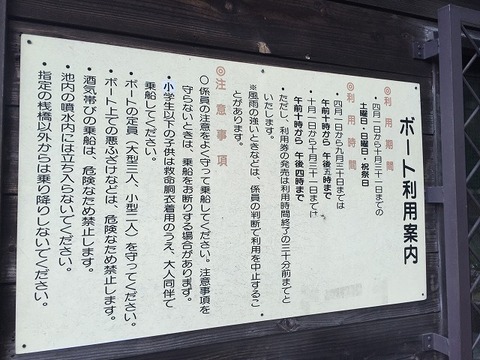 ボート利用案内
◎利用期間
・四月一日から十月三十一日までの
土曜日・日曜日・祝祭日
◎利用時間
・四月一日から九月三十日までは
午前十時から 午後五時まで
・十月一日から十月三十一日までは
午前十時から 午後四時まで
・ただし、利用券の発売は利用時間終了の三十分前までと
いたします。
※風雨の強いときなどは、係員の判断で利用を中止するこ
とがあります。
◎注意事項
○係員の注意をよく守って乗船してください。注意事項を
守らないときは、乗船をお断りする場合があります。
・小学生以下の子供は救命胴衣着用のうえ、大人同伴で
乗船してください。
・ボートの定員（大型三人、小型二人）を守ってください。
・ボート上での悪ふざけなどは、危険なため禁止します。
・酒気帯びの乗船は、危険なため禁止します。
・池内の噴水内には立ち入らないでください。
・指定の桟橋以外からは乗り降りしないでください。